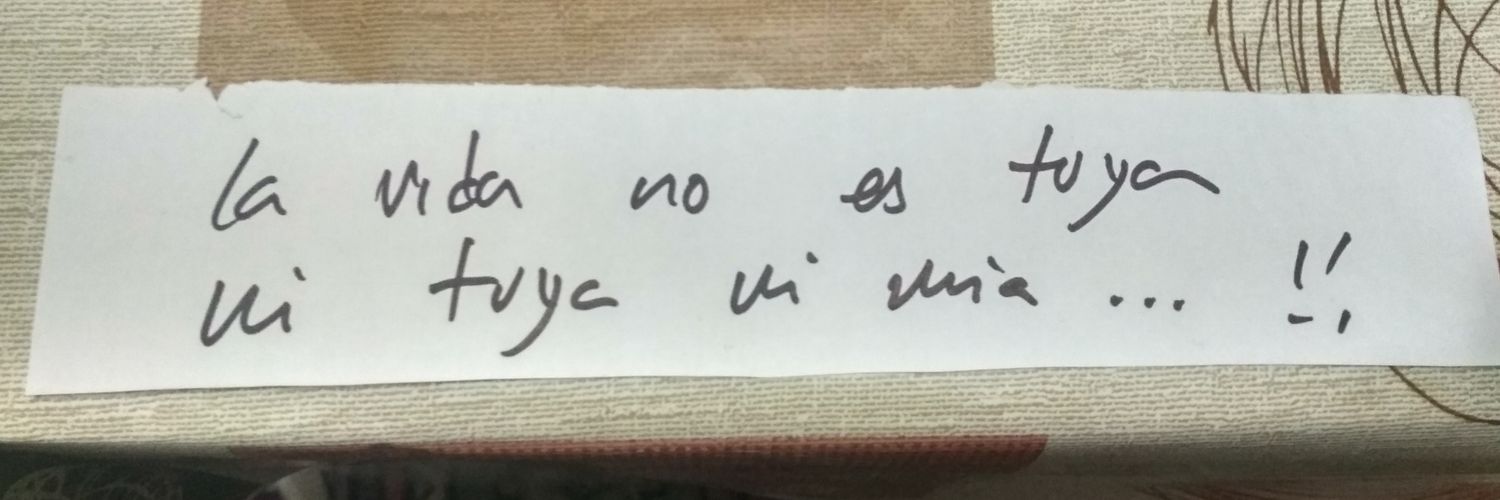 la vida no es tuya
ni tuya ni mia ... !!